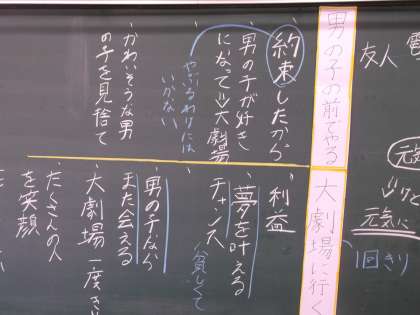 友人
元気に
1回きり
男の子の前でやる
約束したから
男の子が好き
になって⇒大劇場
やぶるわけには
いかない
・かわいそうな男
の子を見捨て
大劇場に行く
・利益
・夢を叶える
チャンス
貧しくて
・男の子なら
また会える
・大劇場一度き
・たくさんの人
を笑顔